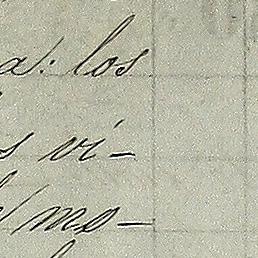 a: los
s vi-
mo-